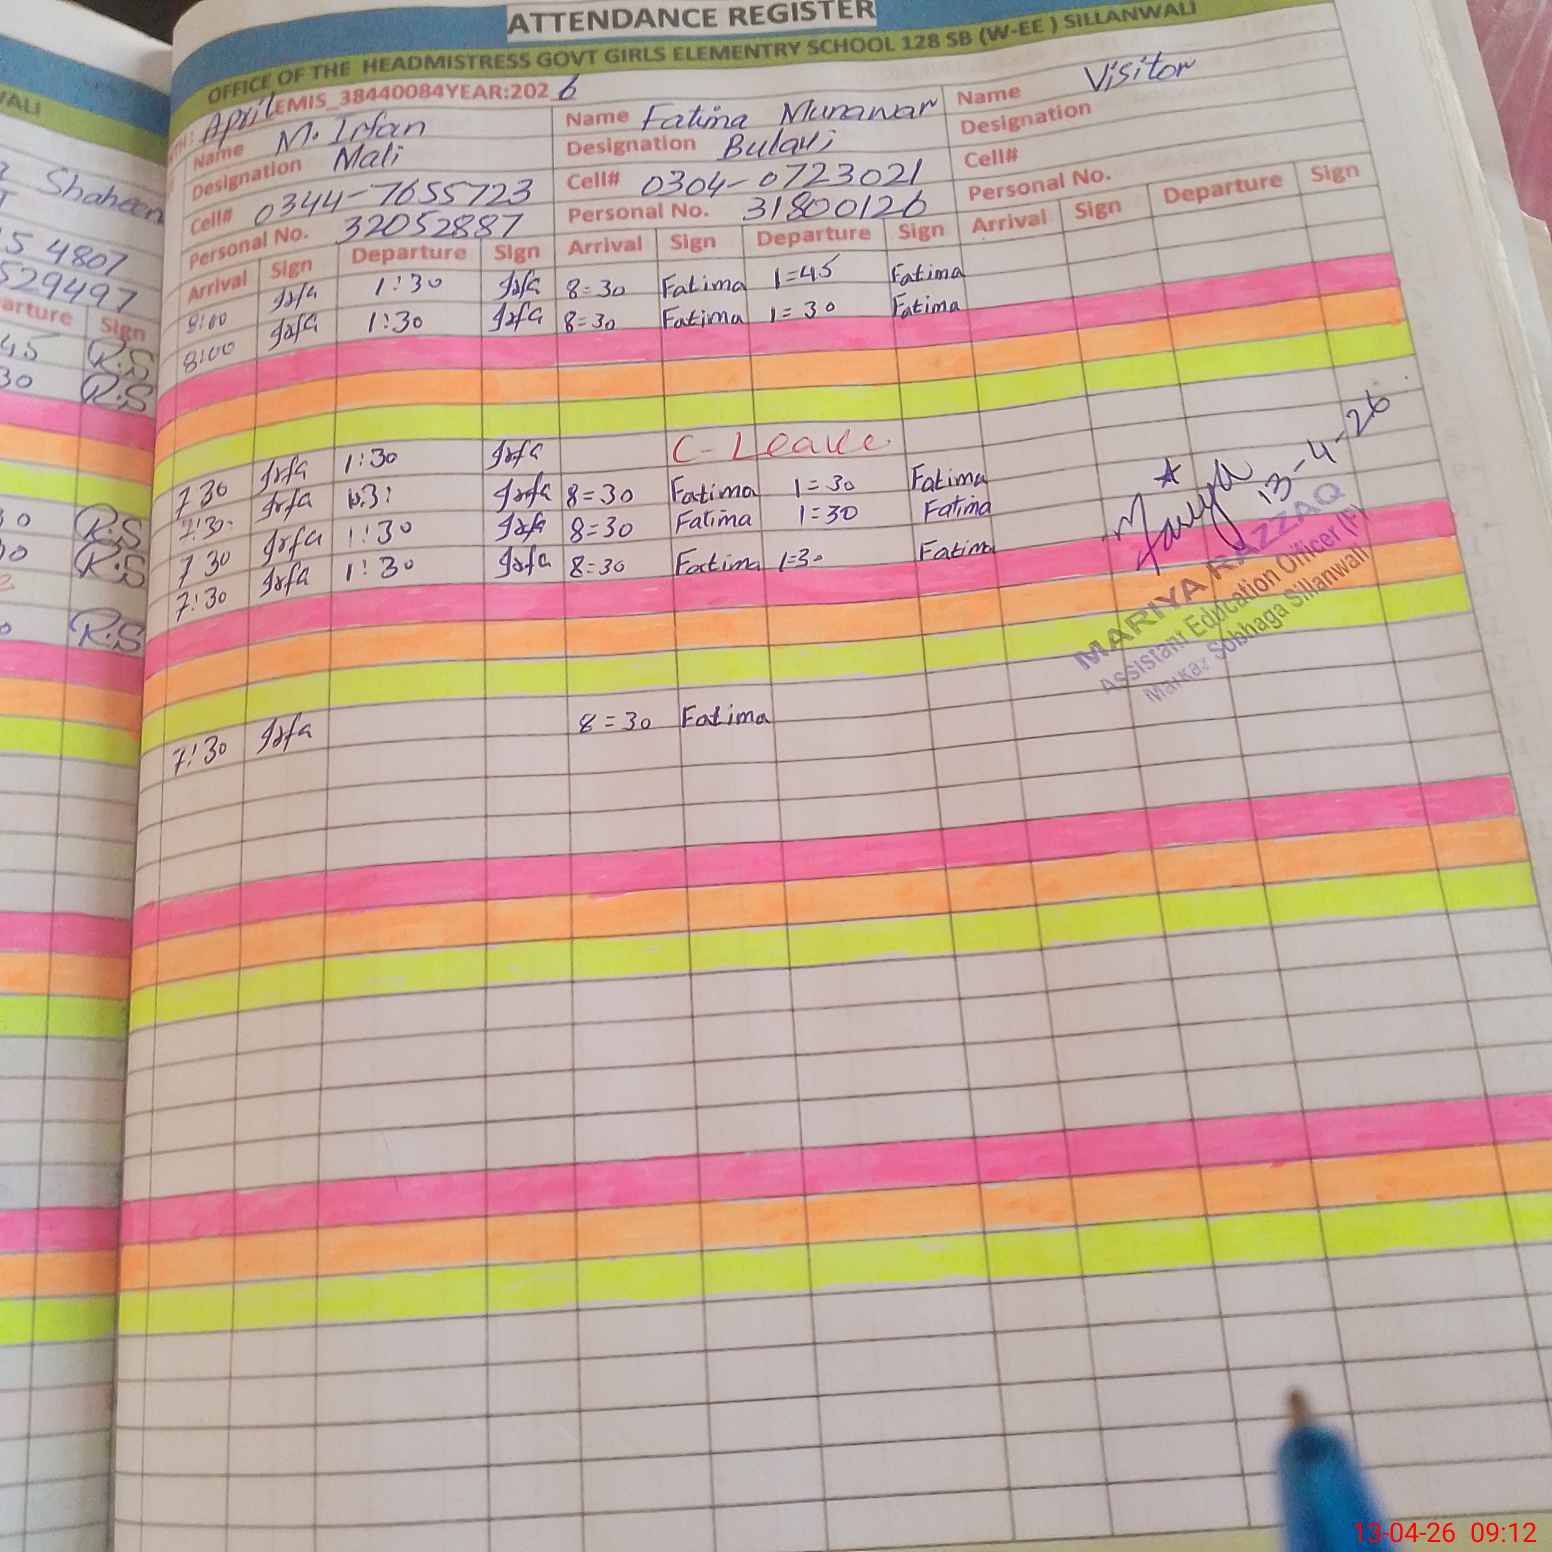 ATTENDANCE REGISTER
OFFICE OF THE HEADMISTRESS GOVT GIRLS ELEMENTRY SCHOOL 128 SB (W-EE ) SILLANWALI
April EMIS_38440084YEAR:2026
Name M. Irfan Name Fatima Munawar Name Visitor
Designation Mali Designation Bulavi Designation
Cell# 0344-7655723 Cell# 0304-0723021 Cell#
Personal No. 32052887 Personal No. 31800126 Personal No.
Arrival Sign Departure Sign Arrival Sign Departure Sign Arrival Sign Departure Sign
8:00 Irfa 1:30 Irfa 8=30 Fatima 1=45 Fatima
8:00 Irfa 1:30 Irfa 8=30 Fatima 1=30 Fatima
7 30 Irfa 1:30 Irfa C-Leave
7:30 Irfa Irfa 8=30 Fatima 1=30 Fatima
7 30 Irfa 1:30 Irfa 8=30 Fatima 1=30 Fatima
7:30 Irfa 1:30 Irfa 8=30 Fatima 1=30 Fatima
7:30 Irfa 8=30 Fatima
13-4-26
MARIYA RAZZAQ
Assistant Education Officer (F)
Markaz Sobhaga Sillanwali
WALI
Shaheen
5 4807
529497
arture Sign
45 R.S
30 R.S
30 R.S
30 R.S
R.S
13-04-26 09:12